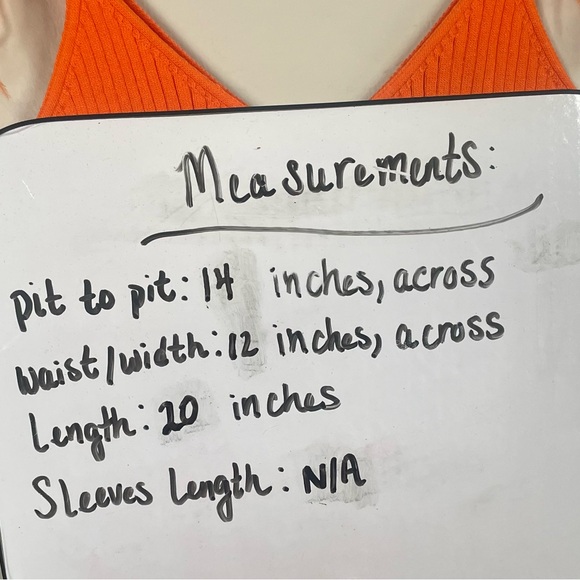 Measurements:
pit to pit: 14 inches, across
waist/width: 12 inches, across
Length: 20 inches
Sleeves Length: N/A